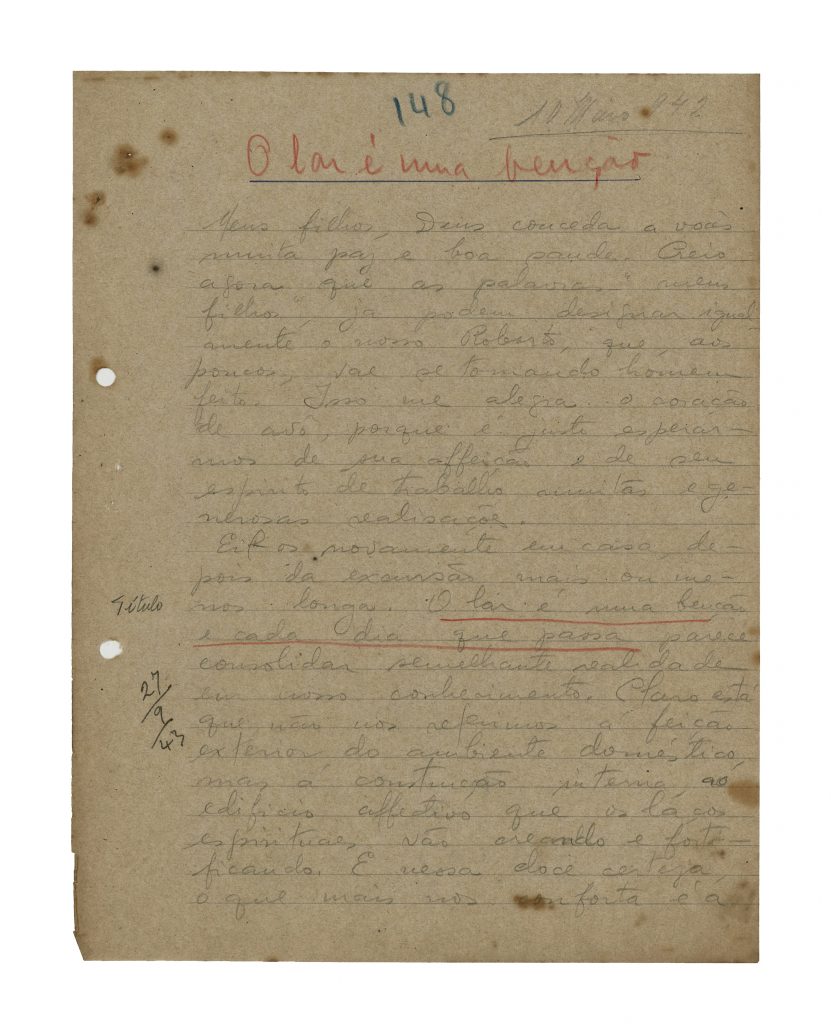 148
Maio 942
O lar é uma benção
Meus filhos, Deus conceda a vocês
muita paz e boa saude. Creio
agora que as palavras "meus
filhos", já podem designar igual-
mente o nosso Roberto, que, aos
poucos, vae se tornando homem
feito. Isso me alegra o coração
de avô, porque é justo esperar-
mos de sua affeição e de seu
espirito de trabalho muitas e ge-
nerosas realisações.
Eil-os novamente em casa, de-
pois da excursão mais ou me-
Titulo
nos longa. O lar é uma benção
e cada dia que passa parece
consolidar semelhante realidade
27/9/43
em nosso conhecimento. Claro está
que não nos referimos á feição
exterior do ambiente doméstico,
mas á construcção interna, ao
edificio affectivo que os laços
espirituaes vão creando e forti-
ficando. E nessa doce certeza,
o que mais nos conforta é a